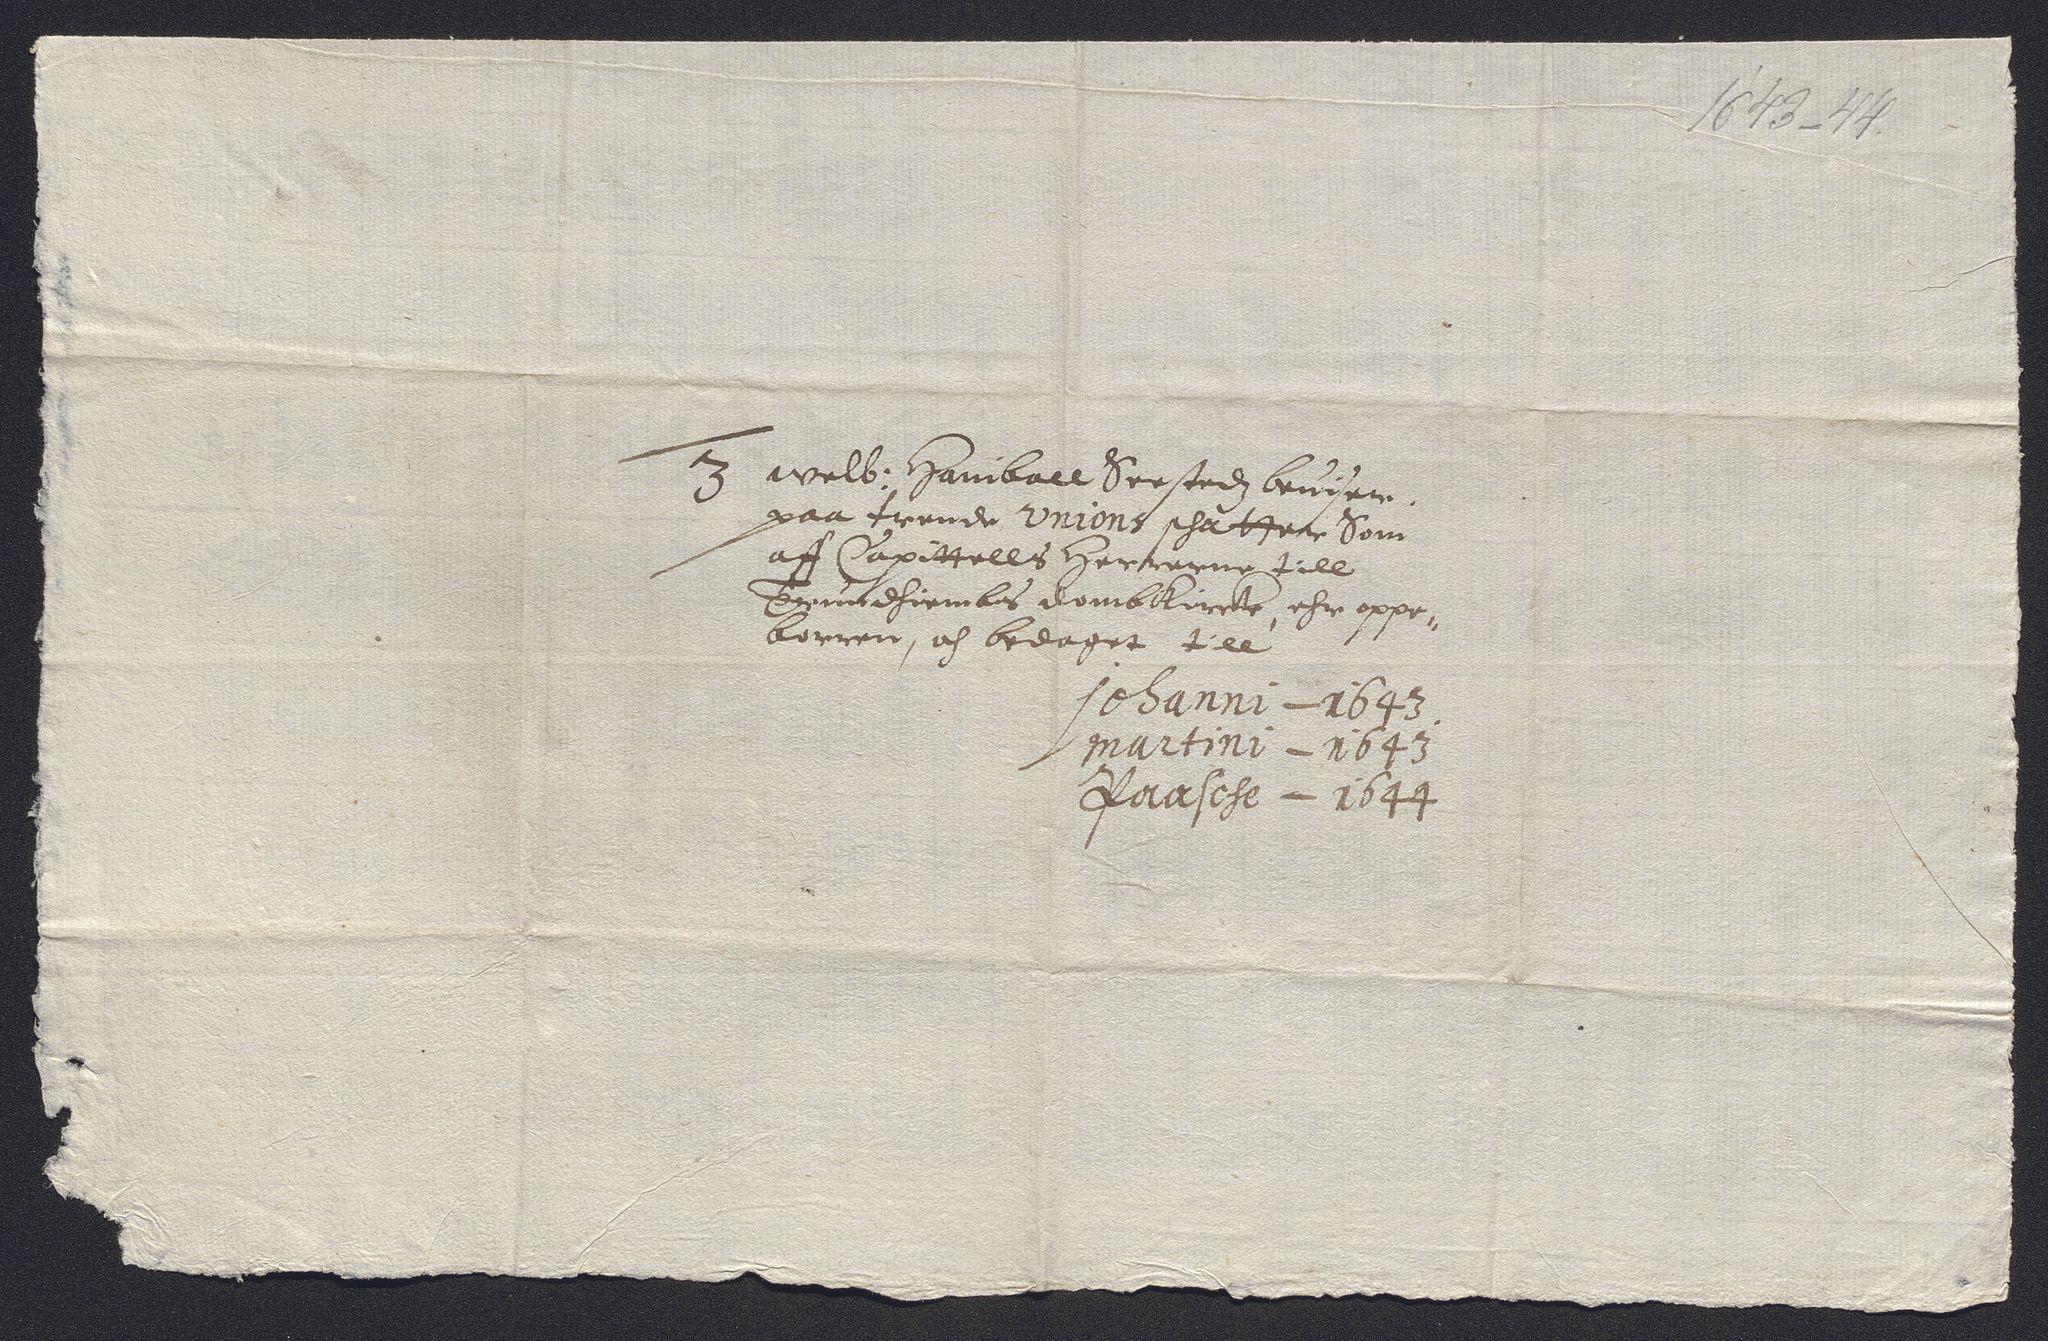 1643-44.
3 welb: Haniball Seestedz beuiser
paa trende Unions schatter Som
aff Capittells Herrerne till
Trundhiembs dombkircke, ehr oppe„
borren, och bedaget till
johanni – 1643.
martini – 1643
Paasche – 1644